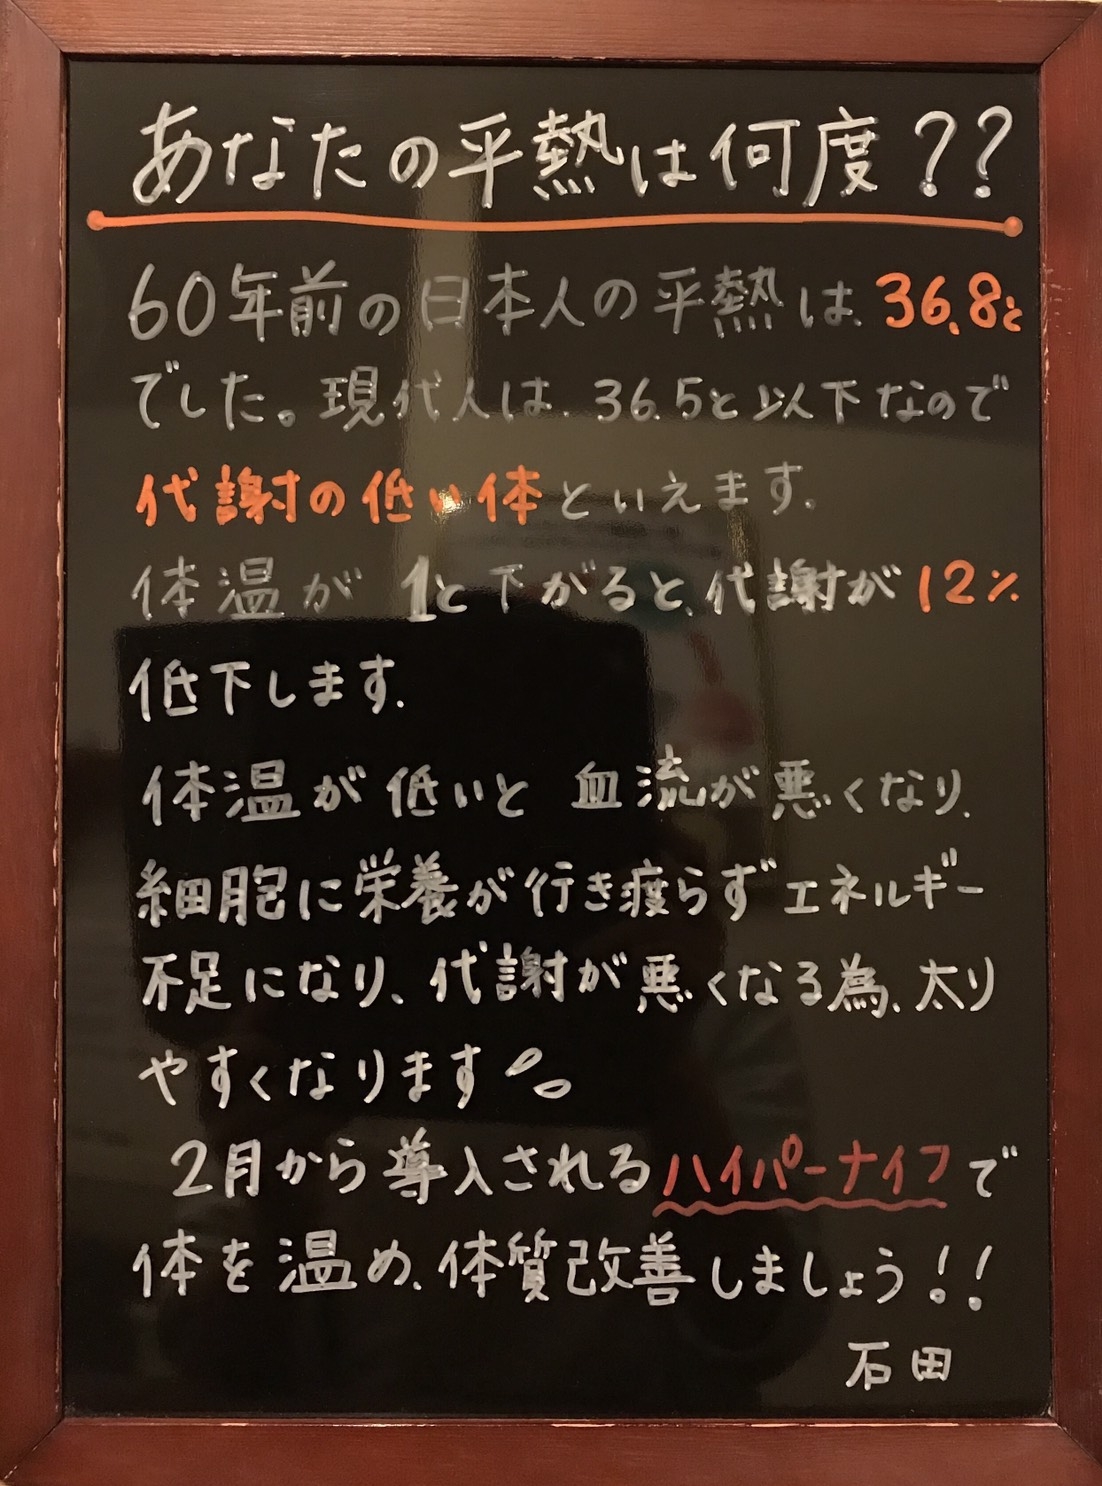 あなたの平熱は何度??
60年前の日本人の平熱は、36.8ど
でした。現代人は、36.5ど以下なので
代謝の低い体といえます。
体温が 1ど下がると、代謝が12%
低下します。
体温が低いと 血流が悪くなり、
細胞に栄養が行き渡らずエネルギー
不足になり、代謝が悪くなる為、太り
やすくなります
2月から導入されるハイパーナイフで
体を温め、体質改善しましょう!!
石田